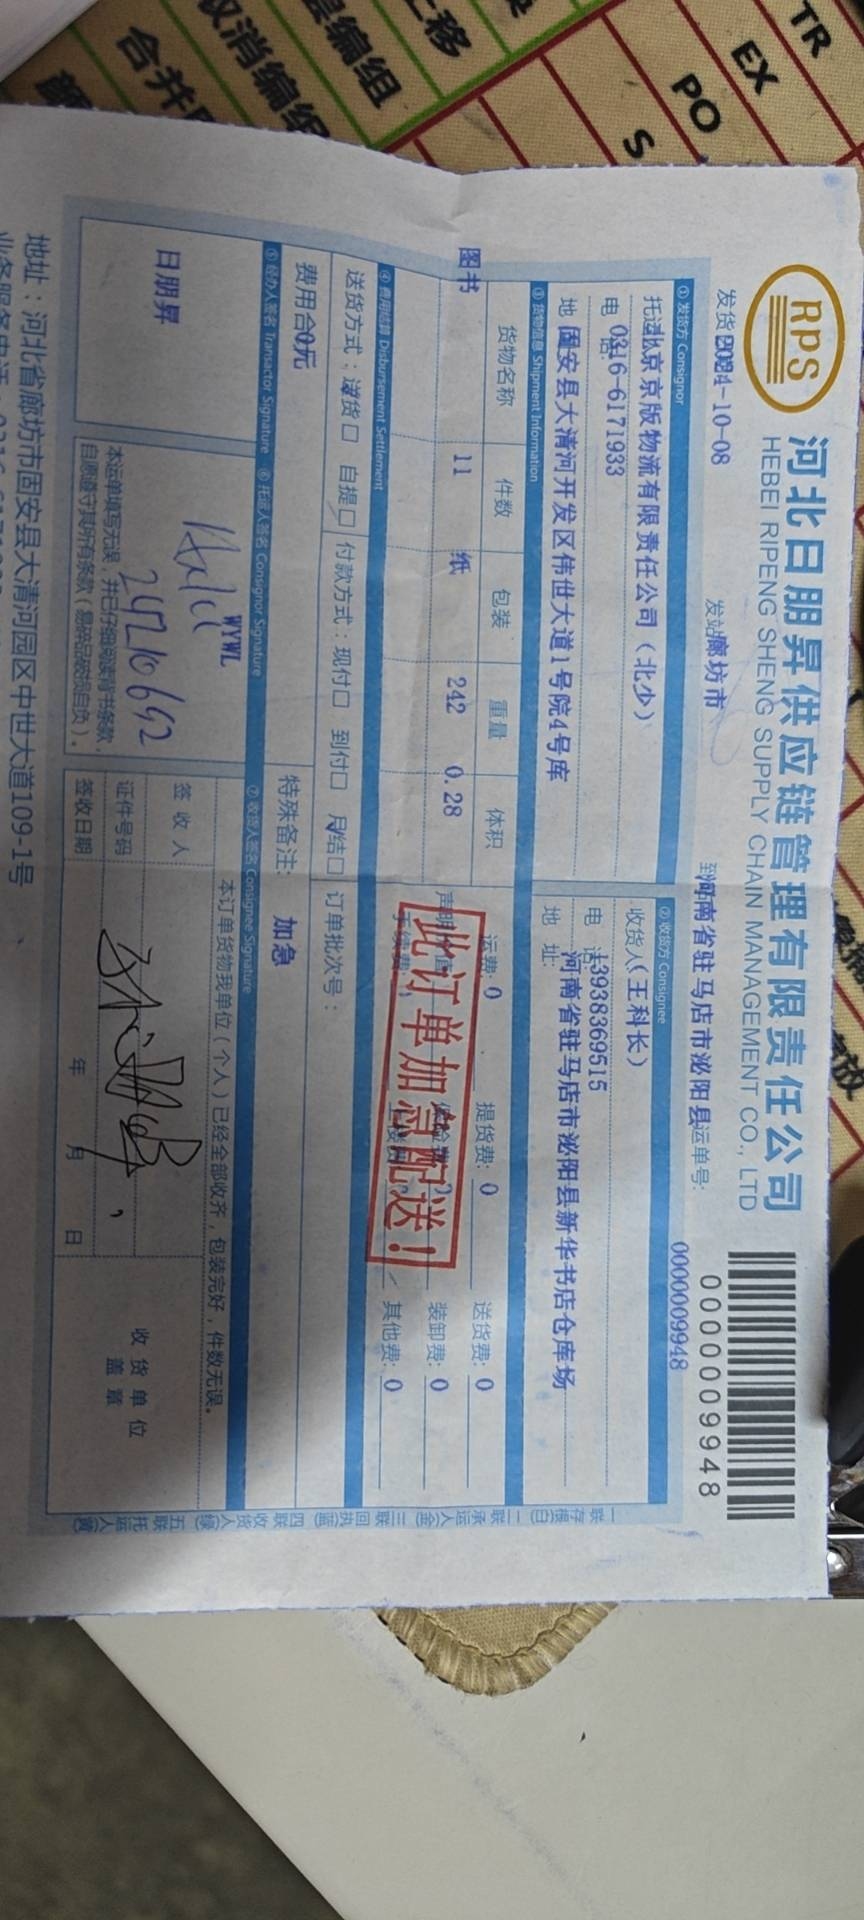 RPS
河北日朋昇供应链管理有限责任公司
HEBEI RIPENG SHENG SUPPLY CHAIN MANAGEMENT CO., LTD
0000009948
发货 2024-10-08
发站 廊坊市
到 河南省驻马店市泌阳县
运单号:
0000009948
① 发货方 Consignor
北京京版物流有限责任公司（北少）
电话: 0316-6171933
地 固安县大清河开发区伟世大道1号院4号库
② 收货方 Consignee
收货人（王科长）
电话: 13938369515
地址: 河南省驻马店市泌阳县新华书店仓库场
③ 货物信息 Shipment Information
货物名称 件数 包装 重量 体积
图书 11 纸 242 0.28
运费: 0 提货费: 0 送货费: 0
声明价值: 保险费: 装卸费: 0
手续费: 其他费: 0
此订单加急配送！
④ 费用结算 Disbursement Settlement
送货方式：送货□ 自提□ 付款方式：现付□ 到付□ 月结□ 订单批次号：
费用合 0元
特殊备注: 加急
⑤ 经办人签名 Transactor Signature
日朋昇
⑥ 托运人签名 Consignor Signature
WYWL
24210692
本运单填写无误，并已仔细阅读背书条款，
自愿遵守其所有条款（易碎品破损自负）。
⑦ 收货人签名 Consignee Signature
本订单货物我单位（个人）已经全部收齐，包装完好，件数无误。
签收人
证件号码
签收日期 年 月 日
收货单位
盖章
一联存根(白) 二联承运人(金) 三联回执(蓝) 四联收货人(绿) 五联托运人(黄)
地址：河北省廊坊市固安县大清河园区中世大道109-1号
上移
层编组
取消编组
合并
TR
EX
PO
S